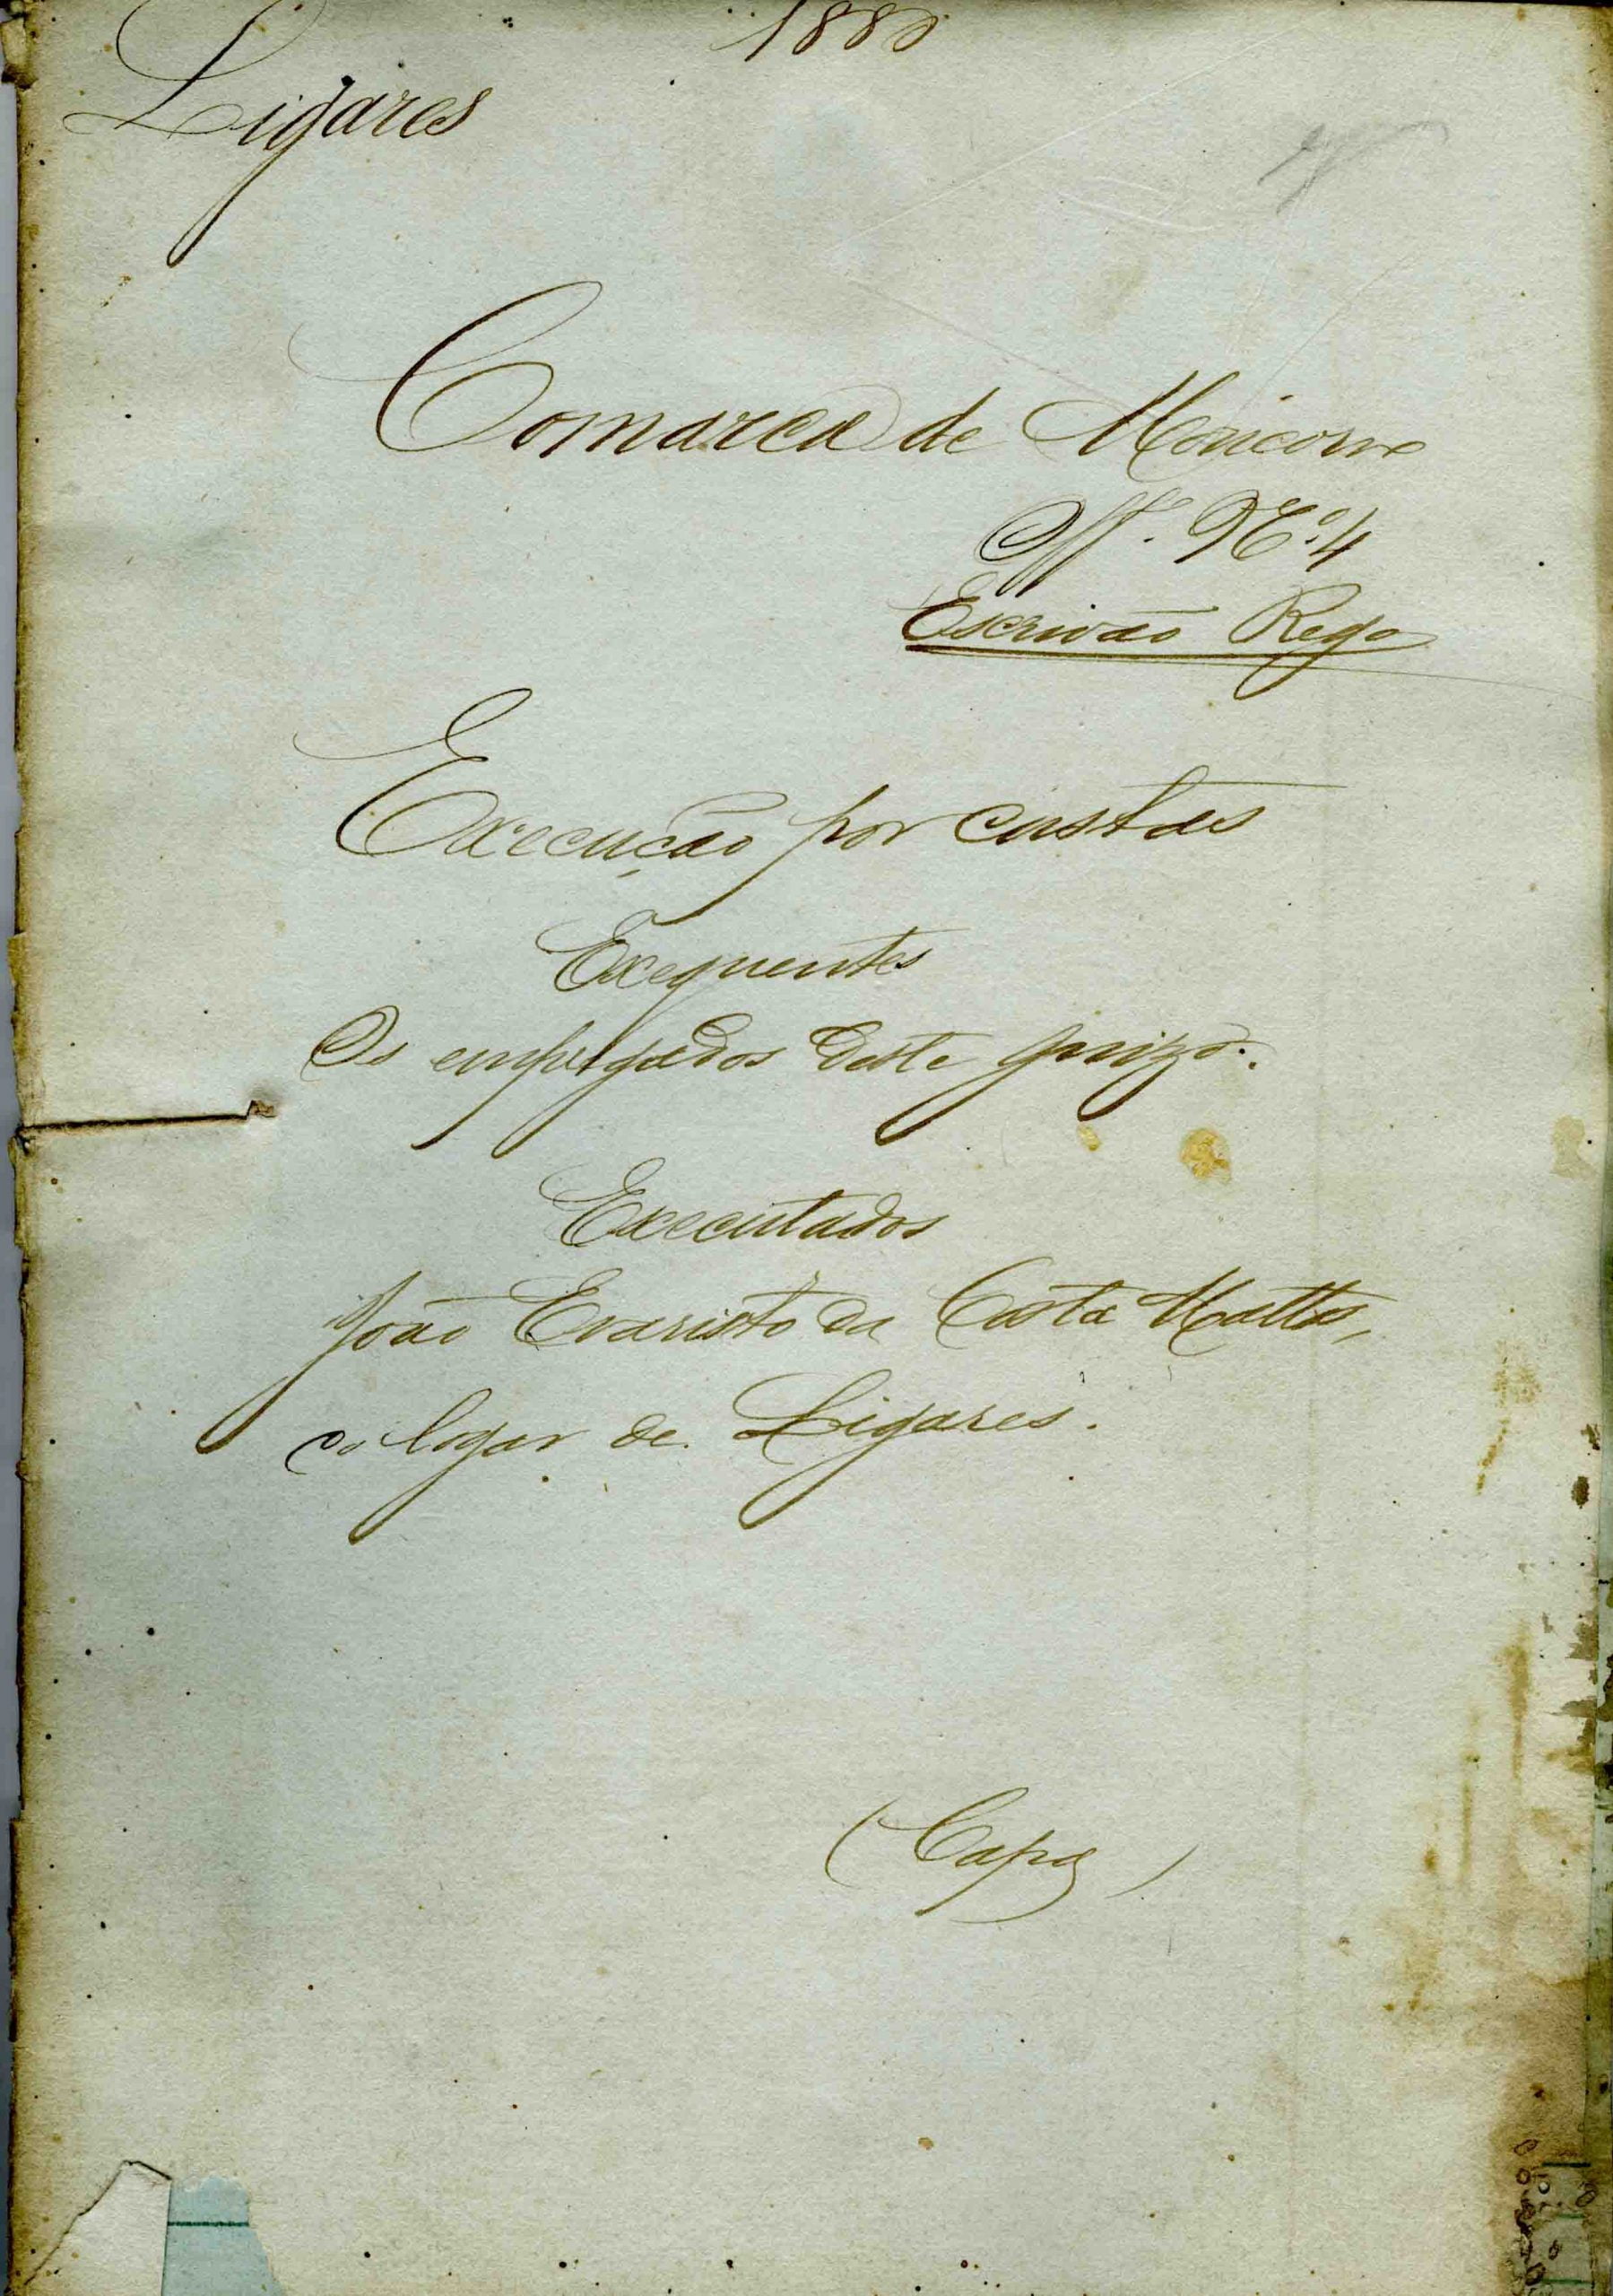 1880
Ligares
Comarca de Moncorvo
Off.º N.º 4
Escrivão Rego
Execução por custas
Exequentes
Os empregados deste Juizo.
Executados
João Evaristo da Costa Mattos,
do logar de Ligares.
(Capa)